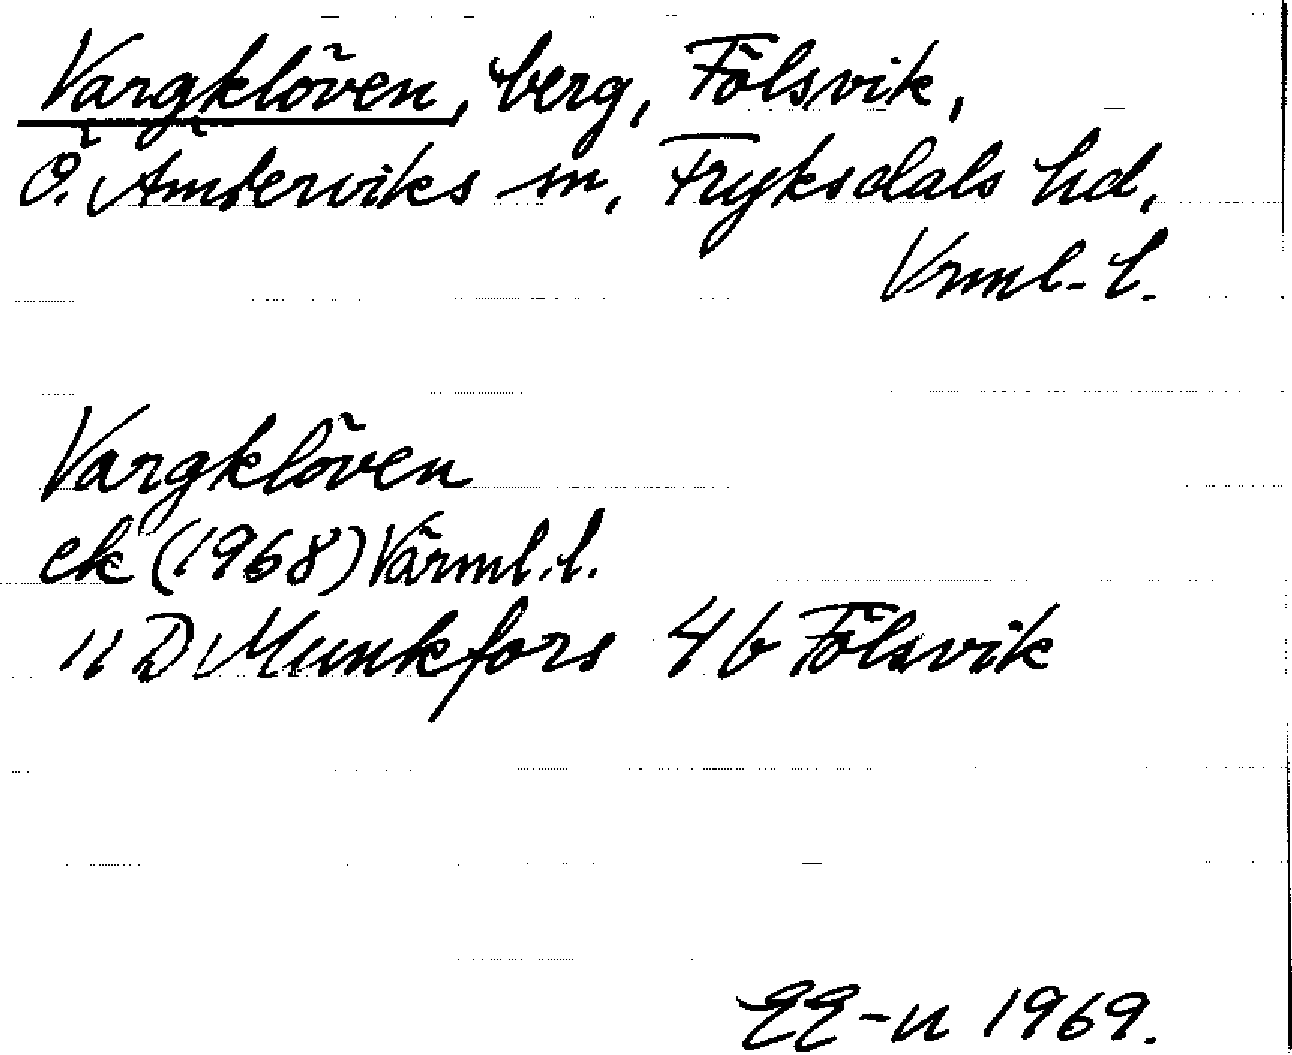 Vargklöven, berg, Fölsvik,
Ö. Ämterviks sn, Fryksdals hd,
Vrml. l.
Vargklöven
ek (1968) Värml. l.
11 D Munkfors 4 b Fölsvik
EE-n 1969.